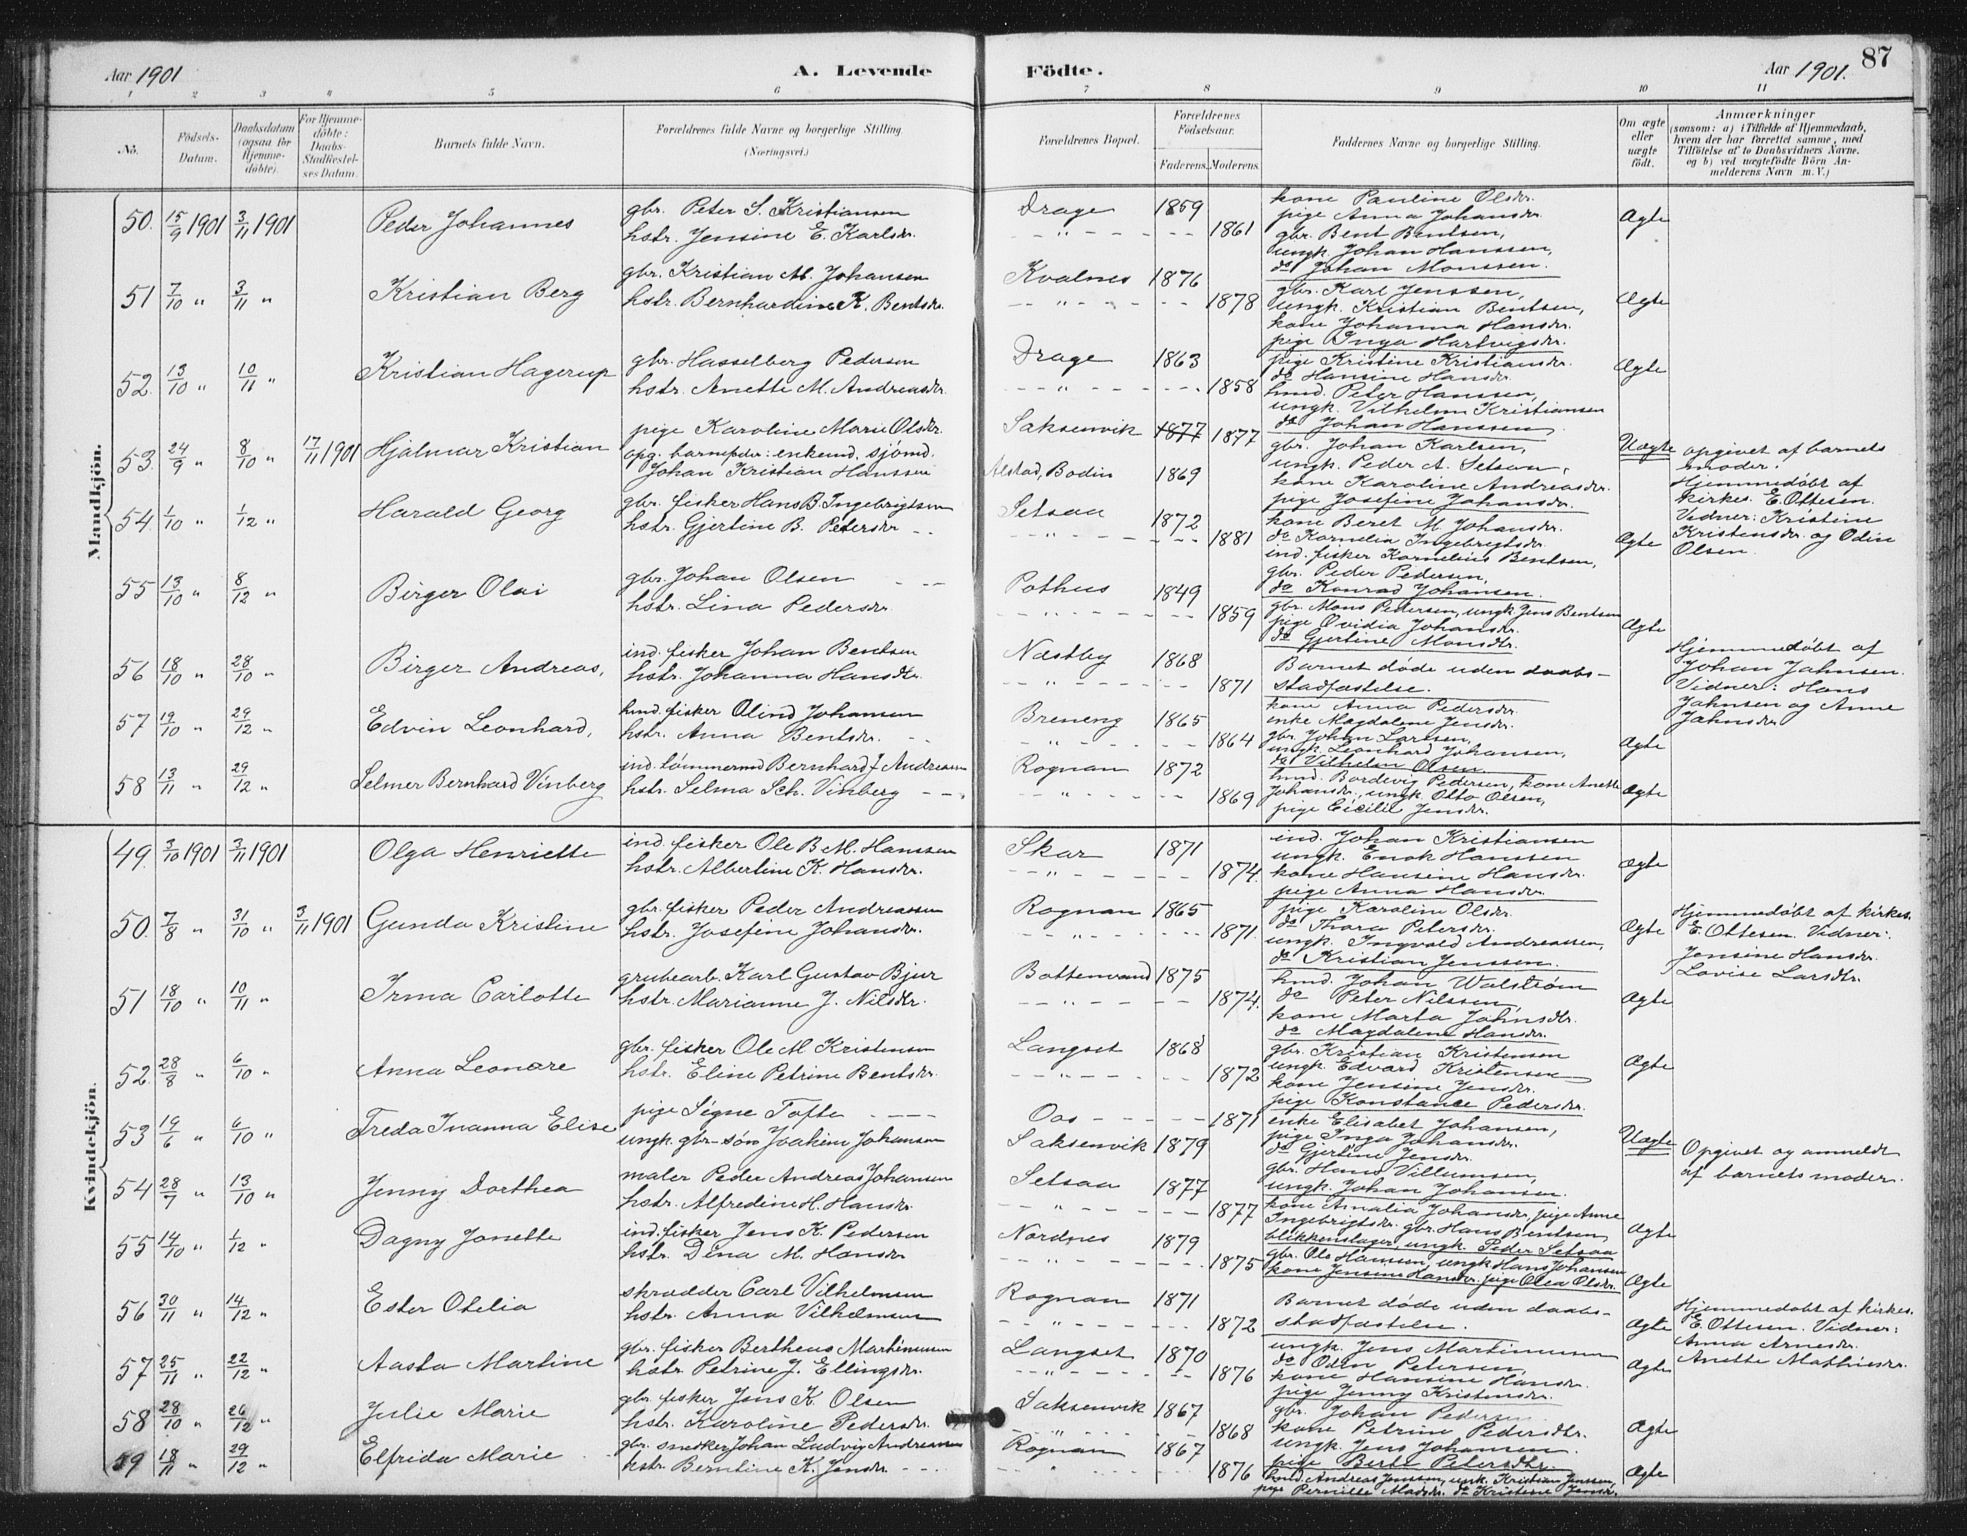 Aar 1901 A. Levende Födte. Aar 1901. 87
1 2 3 4 5 6 7 8 9 10 11
No. Födsels-Datum. Daabsdatum (ogsaa for Hjemme-döbte). For Hjemme-döbte: Daabs-Stadfæstel-ses Datum. Barnets fulde Navn. Forældrenes fulde Navne og borgerlige Stilling (Næringsvei.) Forældrenes Bopæl. Forældrenes Födselsaar. Faderens. Moderens. Faddernes Navne og borgerlige Stilling. Om ægte eller uægte födt. Anmærkninger (saasom: a) i Tilfælde af Hjemmedaab, hvem der har forrettet samme, med Tilföielse af to Daabsvidners Navne. og b) ved uægtefödte Börn An-melderens Navn m. V.)
Mandkjön.
50. 15/9 1901 3/11 1901 Peder Johannes gbr. Peter S. Kristiansen Drage 1859 kone Pauline Olsdr. Ægte
hstr. Jensine E. Karlsdr. 1861 pige Anna Johansdr.
gbr. Bent Bentsen,
ungk. Johan Hanssen,
do Johan Monssen.
51 7/10 " 3/11 " Kristian Berg gbr. Kristian M. Johansen Kvalnes 1876 gbr. Karl Jenssen, Ægte
hstr. Bernhardine K. Bentsdr. 1878 ungk. Kristian Bentsen,
kone Johanna Hansdr.
pige Inga Hartvigsdr.
52. 13/10 " 10/11 " Kristian Hagerup gbr. Hasselberg Pedersen Drage 1863 pige Kristine Kristiansdr. Ægte
hstr. Anette M. Andreasdr. 1858 do Hansine Hansdr.
hmd. Peter Hanssen,
ungk. Vilhelm Kristiansen
do Johan Hanssen
53. 24/9 " 8/10 " 17/11 1901 Hjalmar Kristian pige Karoline Marie Olsdr. Saksenvik 1877 1877 gbr. Johan Karlsen, Uægte opgivet af barnets
opg. barnefader: enkemd. sjömd. ungk. Peder A. Setsaa, moder.
Johan Kristian Hanssen Alstad, Bodin 1869 kone Karoline Andreasdr. Hjemmedöbt af
pige Josefine Johansdr. kirkes. E. Ottesen.
54. 1/10 " 1/12 " Harald Georg gbr. fisker Hans B. Ingebrigtsen Setsaa 1872 kone Beret M. Johansdr. Ægte Vidner: Kristine
hstr. Gjertine B. Petersdr. 1881 do Kornelia Ingebrigtsdr. Kristensdr. og Odin
ind. fisker Kornelius Bentsen, Olsen.
gbr. Peder Pedersen,
do Konrad Johansen.
55 13/10 " 8/12 " Birger Olai gbr. Johan Olsen Pothus 1849 gbr. Mons Pedersen, ungk. Jens Bentsen Ægte
hstr. Lina Pedersdr. 1859 pige Ovidia Johansdr.
do Gjertine Monsdtr.
56 18/10 " 28/10 " Birger Andreas, ind. fisker Johan Bentsen Næstby 1868 Barnet döde uden daabs- Hjemmedöbt af
hstr. Johanna Hansdtr. 1871 stadfæstelse. Johan Jahnsen.
Vidner: Hans
Jahnsen og Anne
Jahnsdr.
57 19/10 " 29/12 " Edvin Leonhard, hmd. fisker Olind Johansen Breneng 1865 kone Anna Pedersdr. Ægte
hstr. Anna Bentsdr. 1864 enke Magdalene Jensdr.
gbr. Johan Larssen,
ungk. Leonhard Johansen,
do Vilhelm Olsen.
58 13/11 " 29/12 " Selmer Bernhard Vinberg ind. tömmermd Bernhard J Andreasen Rognan 1872 hmd. Bordevig Pedersen, kone Anette Ægte
hstr. Selma Sch. Vinberg 1869 Johansdr., ungk. Otto Olsen,
pige Cecilie Jensdr.
Kvindekjön.
49. 3/10 1901 3/11 1901 Olga Henriette ind. fisker Ole B. M. Hanssen Skar 1871 ind. Johan Kristiansen Ægte
hstr. Albertine K. Hansdr. 1874. ungk. Enok Hanssen
kone Hansine Hansdr.
pige Anna Hansdr.
50. 7/8 " 31/10 " 3/11 1901 Gunda Kristine gbr. fisker Peder Andreassen Rognan 1865 pige Karoline Olsdr. Ægte Hjemmedöbt af kirkes.
hstr. Josefine Johansdr. 1871. do Thora Petersdr. E. Ottesen. Vidner:
ungk. Ingvald Andreassen, Jensine Hansdr.
do Kristian Jenssen. Lovise Larsdtr.
51 18/10 " 10/11 " Irma Carlotte grubearb. Karl Gustav Bjur Bottenvand 1875 hmd. Johan Walström Ægte
hstr. Marianne J. Nilsdtr. 1874. do Peter Nilssen,
kone Marta Johnsdtr.
do Magdalene Hansdr.
52. 28/8 " 6/10 " Anna Leonore gbr. fisker Ole M. Kristensen Langset 1868 gbr. Kristian Kristensen Ægte
hstr. Eline Petrine Bentsdr. 1872 ungk. Edvard Kristensen
kone Jensine Jensdr.
pige Konstance Pedersdr.
53 19/6 " 6/10 " Freda Inanna Elise pige Signe Tofte Oos 1871 enke Elisabet Johansen, Uægte Opgivet og anmeldt
ungk. gbr. sön Joakim Johansen Saksenvik 1879 pige Inga Johansdr. af barnets moder.
do Gjertine Jensdr.
gbr. Hans Villumsen,
ungk. Johan Johansen.
54 28/7 " 13/10 " Jenny Dorthea maler Peder Andreas Johansen Setsaa 1877 kone Amalia Johansdr. pige Anne Ægte
hstr. Alfredine H. Hansdr. 1877 Ingebrigtsdr. gbr. Hans Bentsen,
blikkenslager, ungk. Peder Setsaa
55 14/10 " 1/12 " Dagny Jonette ind. fisker Jens K. Pedersen Nordnes 1879 gbr. Ole Hansen, ungk. Hans Johansen Ægte
hstr. Dina M. Hansdr 1875 kone Jensine Hansdr. pige Olea Olsdr.
56 30/11 " 14/12 " Ester Otelia skrædder Carl Vilhelmsen Rognan 1871 Barnet döde uden daabs- Ægte Hjemmedöbt af kirkes.
hstr. Anna Vilhelmsen 1872 stadfæstelse. E. Ottesen. Vidner:
Anna Arnesdr.
Anette Mathiesdr.
57 25/11 " 22/12 " Aasta Martine gbr. fisker Bertheus Martinussen Langset 1870 ungk. Jens Martinussen Ægte
hstr. Petrine J. Ellingsdr. 1876 do Odin Petersen,
kone Hansine Hansdr.
pige Jenny Kristensdr.
58 28/10 " 26/12 " Julie Marie gbr. fisker Jens K. Olsen Saksenvik 1867 gbr. Johan Pedersen Ægte
hstr. Karoline Pedersdr. 1868 kone Petrine Pedersdtr.
ungk. Jens Johansen.
pige Berte Petersdtr.
59 18/11 " 29/12 " Elfrida Marie gbr. snedker Johan Ludvig Andreassen Rognan 1867 hmd. Andreas Jenssen, ungk. Kristian Jenssen, Ægte
hstr. Berntine K. Jensdr. 1876 pige Pernille Madsdr. do Kristine Jensdr.